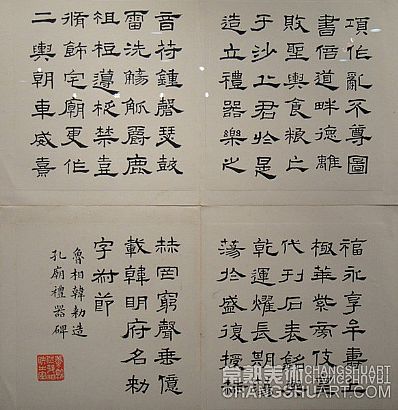 項作亂不尊圖
書倍道畔德離
敗聖輿食糧亡
于沙丘君於是
造立禮器樂之
音符鍾磬瑟鼓
雷洗觴觚爵鹿
柤梪籩柉禁壺
脩飾宅廟更作
二輿朝車威熹
福永享牟壽上
極華紫旁伎皇
代刊石表銘與
乾運燿長期蕩
蕩於盛復授赫
赫罔窮聲垂億
載韓明府名勑
字叔節
魯相韓勑造
孔廟禮器碑